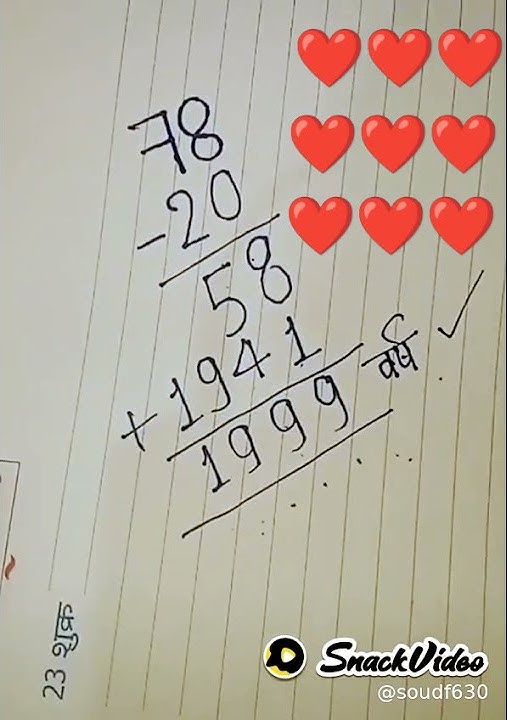 78
-20
58
+1941
1999 वर्ष ✓
23 शुक्र
SnackVideo
@soudf630